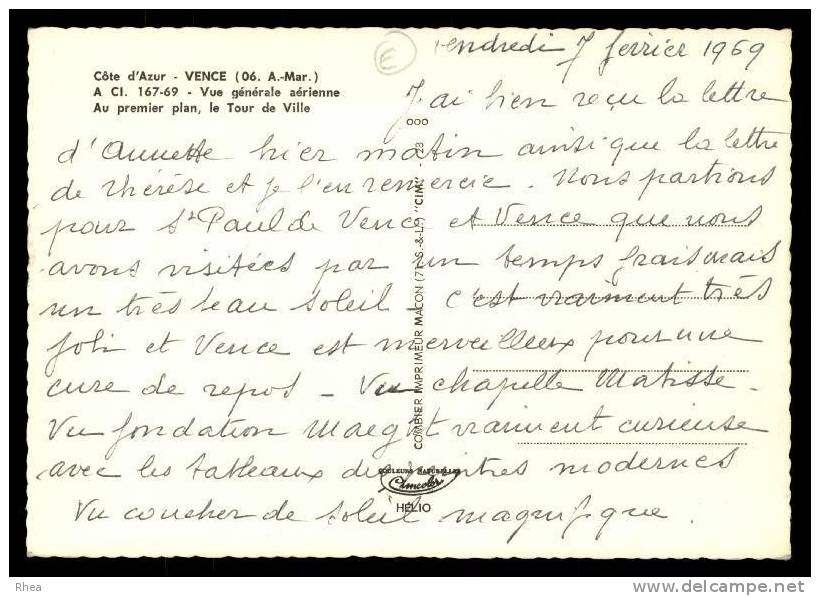 Vendredi 7 février 1969
Côte d'Azur - VENCE (06. A.-Mar.)
A CI. 167-69 - Vue générale aérienne
Au premier plan, le Tour de Ville
E
J'ai bien reçu la lettre
d'Annette hier matin ainsi que la lettre
de Thérèse et je l'en remercie. Nous partions
pour St Paul de Vence et Vence que nous
avons visitées par un temps frais mais
un très beau soleil - c'est vraiment très
joli et Vence est merveilleux pour une
cure de repos - Vu chapelle Matisse -
Vu fondation Maeght vraiment curieuse
avec les tableaux de peintres modernes
Vu coucher de soleil magnifique.
COMBIER IMPRIMEUR MACON (71 S.-&-L.) "CIM"
COULEURS NATURELLES
Cimcolor
HÉLIO
Rhea
delcampe.net